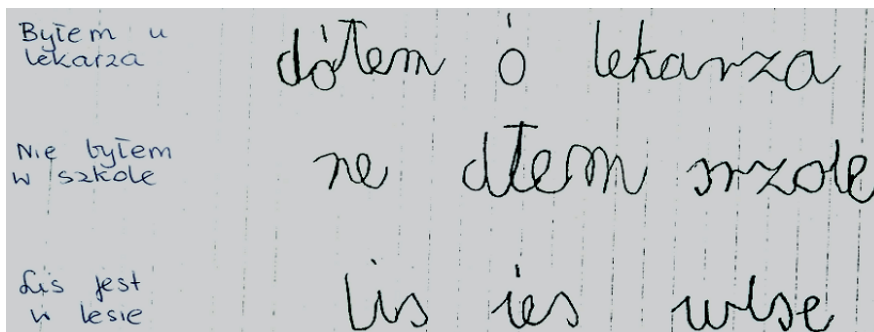 Byłem u
lekarza
dółem ó lekarza
Nie byłem
w szkole
ne dłem srzole
Lis jest
w lesie
lis ies wlse